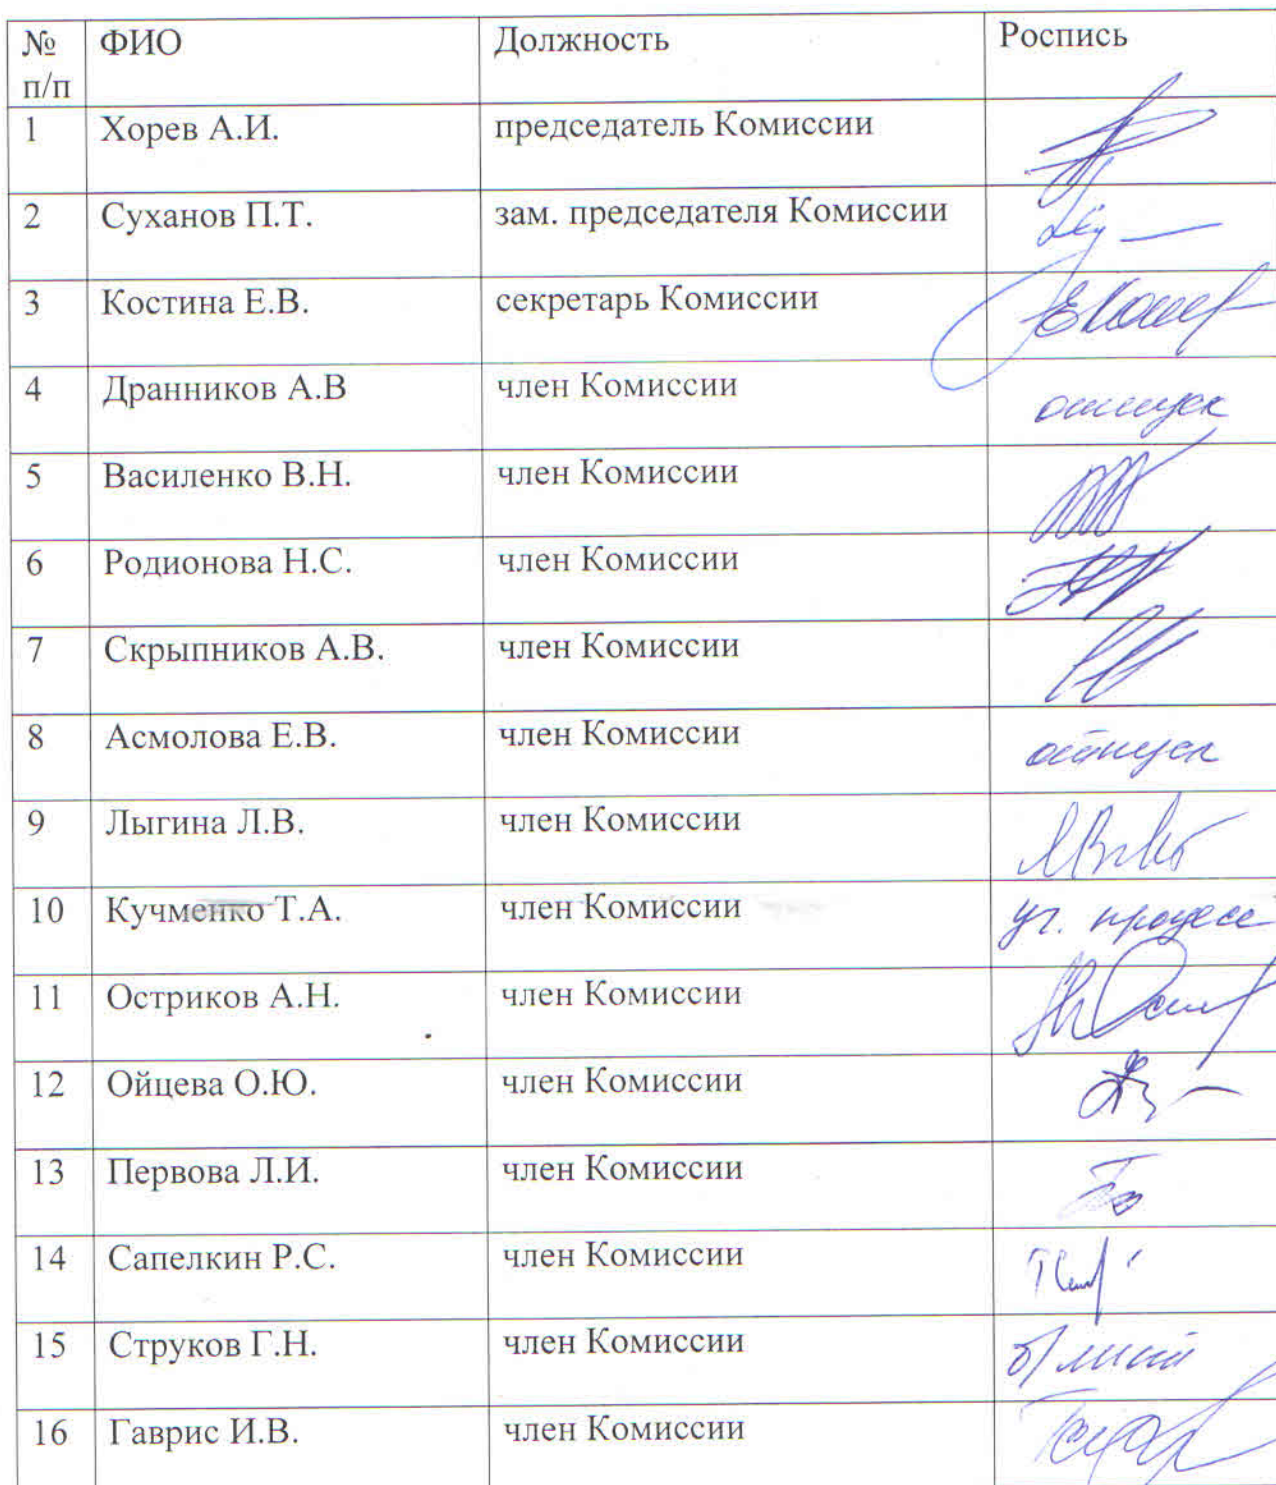 № ФИО Должность Роспись
п/п
1 Хорев А.И. председатель Комиссии
2 Суханов П.Т. зам. председателя Комиссии
3 Костина Е.В. секретарь Комиссии
4 Дранников А.В член Комиссии отпуск
5 Василенко В.Н. член Комиссии
6 Родионова Н.С. член Комиссии
7 Скрыпников А.В. член Комиссии
8 Асмолова Е.В. член Комиссии отпуск
9 Лыгина Л.В. член Комиссии
10 Кучменко Т.А. член Комиссии уч. процесс
11 Остриков А.Н. член Комиссии
12 Ойцева О.Ю. член Комиссии
13 Первова Л.И. член Комиссии
14 Сапелкин Р.С. член Комиссии
15 Струков Г.Н. член Комиссии б/лист
16 Гаврис И.В. член Комиссии